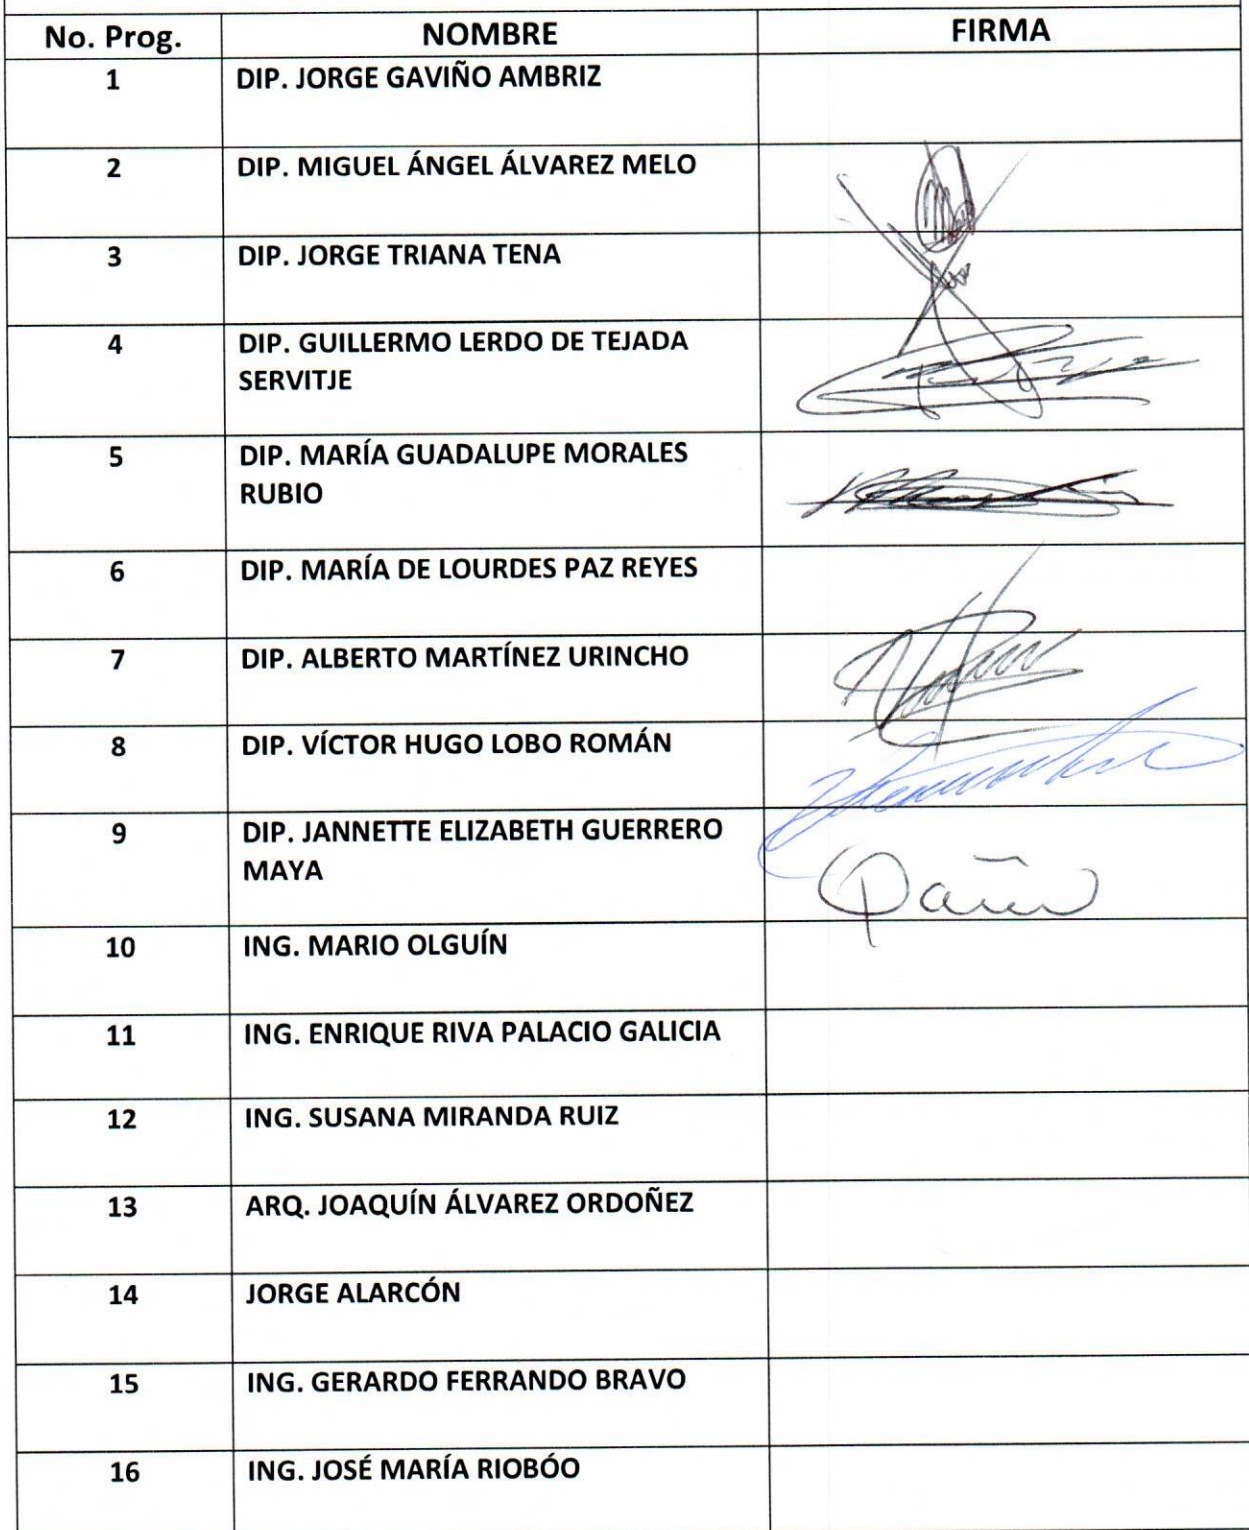 No. Prog. NOMBRE FIRMA
1 DIP. JORGE GAVIÑO AMBRIZ
2 DIP. MIGUEL ÁNGEL ÁLVAREZ MELO
3 DIP. JORGE TRIANA TENA
4 DIP. GUILLERMO LERDO DE TEJADA
SERVITJE
5 DIP. MARÍA GUADALUPE MORALES
RUBIO
6 DIP. MARÍA DE LOURDES PAZ REYES
7 DIP. ALBERTO MARTÍNEZ URINCHO
8 DIP. VÍCTOR HUGO LOBO ROMÁN
9 DIP. JANNETTE ELIZABETH GUERRERO
MAYA
10 ING. MARIO OLGUÍN
11 ING. ENRIQUE RIVA PALACIO GALICIA
12 ING. SUSANA MIRANDA RUIZ
13 ARQ. JOAQUÍN ÁLVAREZ ORDOÑEZ
14 JORGE ALARCÓN
15 ING. GERARDO FERRANDO BRAVO
16 ING. JOSÉ MARÍA RIOBÓO